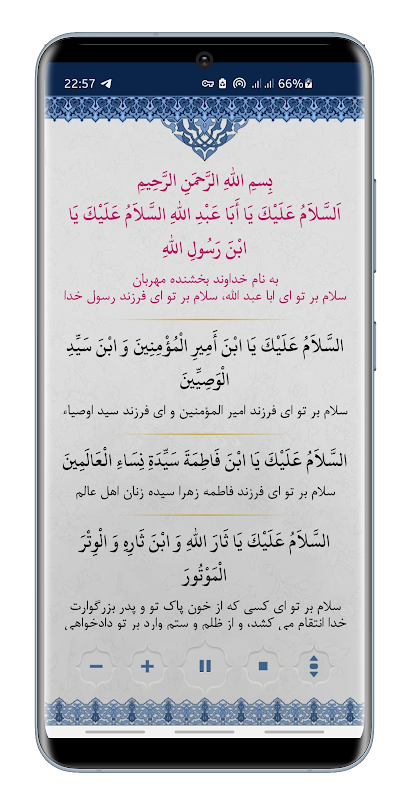 22:57
66%
بِسمِ اللهِ الرَّحمَنِ الرَّحِیمِ
اَلسَّلاَمُ عَلَيْكَ يَا أَبَا عَبْدِ اللهِ السَّلاَمُ عَلَيْكَ يَا
ابْنَ رَسُولِ اللهِ
به نام خداوند بخشنده مهربان
سلام بر تو ای ابا عبد الله، سلام بر تو ای فرزند رسول خدا
السَّلاَمُ عَلَيْكَ يَا ابْنَ أَمِيرِ الْمُؤْمِنِينَ وَ ابْنَ سَيِّدِ
الْوَصِيِّينَ
سلام بر تو ای فرزند امیر المؤمنین و ای فرزند سید اوصیاء
السَّلاَمُ عَلَيْكَ يَا ابْنَ فَاطِمَةَ سَيِّدَةِ نِسَاءِ الْعَالَمِينَ
سلام بر تو ای فرزند فاطمه زهرا سیده زنان اهل عالم
السَّلاَمُ عَلَيْكَ يَا ثَارَ اللهِ وَ ابْنَ ثَارِهِ وَ الْوِتْرَ
الْمَوْتُورَ
سلام بر تو ای کسی که از خون پاک تو و پدر بزرگوارت
خدا انتقام می کشد، و از ظلم و ستم وارد بر تو دادخواهی